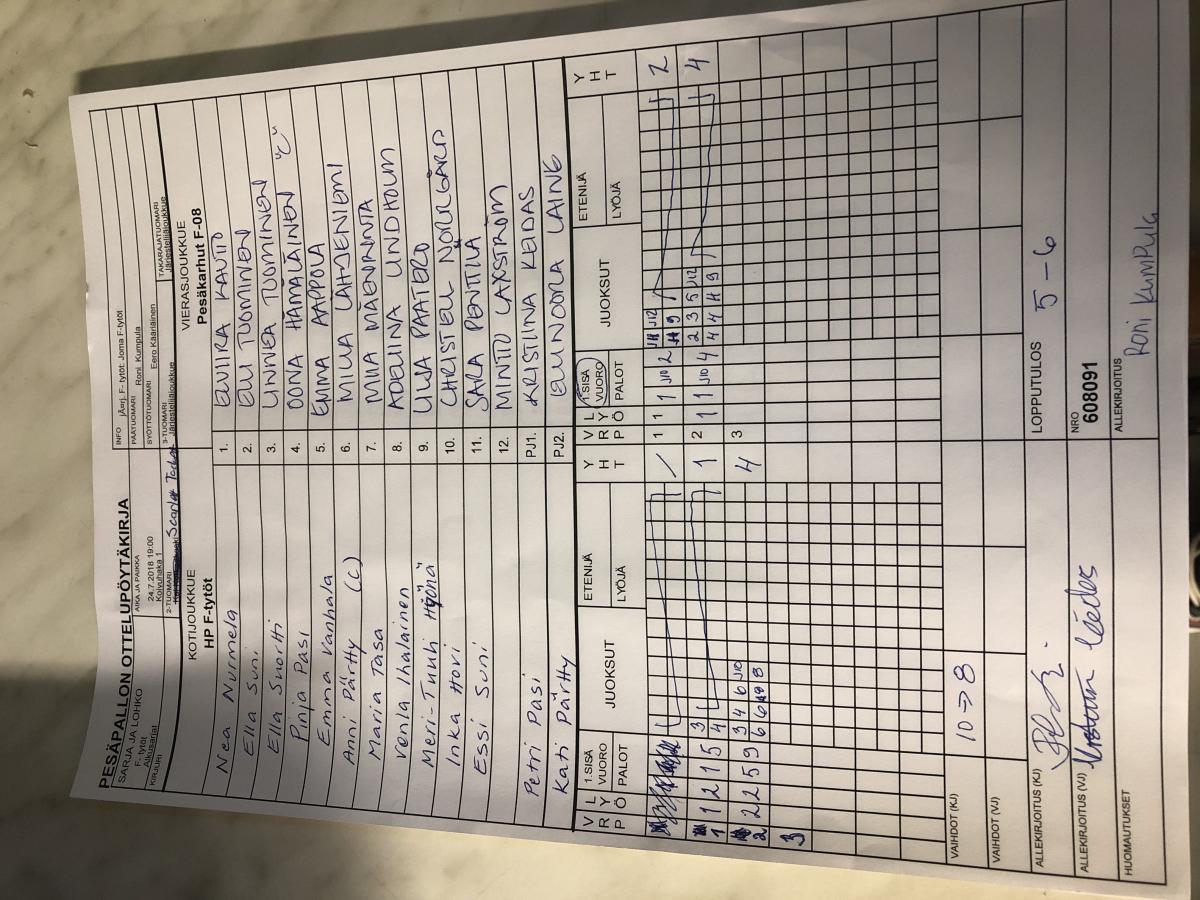 PESÄPALLON OTTELUPÖYTÄKIRJA
SARJA JA LOHKO
F- tytöt
Alkusarjat
KIRJURI
AIKA JA PAIKKA
24.7.2018 19:00
Koivuhaka 1
2-TUOMARI
INFO jÄŗrj. F- tytöt: Joma F-tytöt
PÄÄTUOMARI Roni. Kumpula
SYÖTTÖTUOMARI Eero Kääriäinen
3-TUOMARI
Järjestelijäjoukkue
TAKARAJATUOMARI
Järjestelijäjoukkue
KOTIJOUKKUE
HP F-tytöt
VIERASJOUKKUE
Pesäkarhut F-08
Nea Nurmela 1. ELVIIRA KAVITO
Ella Suni 2. ELLI TUOMINEN
Ella Suortti 3. LINNEA TUOMINEN
Pinja Pasi 4. OONA HÄMÄLÄINEN "C"
Emma Vanhala 5. EMMA AAPPOLA
Anni Pärtty (C) 6. MILLA LÄHDENIEMI
Maria Tasa 7. MIIA MÄENRINTA
Venla Ihalainen 8. ADELINA LINDHOLM
Meri-Tuuli 9. LILJA PAATERO
Inka Hovi 10. CHRISTELL NORRGÅRD
Essi Suni 11. SARA PENTTILÄ
12. MINTTU LAXSTRÖM
Petri Pasi PJ1. KRISTIINA KEIDAS
Kati Pärtty PJ2. ELLINOORA LAINE
V R P L Y Ö 1.SISÄ VUORO PALOT JUOKSUT ETENIJÄ LYÖJÄ Y H T V R P L Y Ö 1.SISÄ VUORO PALOT JUOKSUT ETENIJÄ LYÖJÄ Y H T
/ 1 1 1 J10 2 J11 J12 9 2
1 1 2 1 5 3 4 1 2 1 1 J10 4 2 3 5 J12 4 4 9 4
2 2 2 5 9 3 4 6 J10 6 6 8 4 3
3
VAIHDOT (KJ) 10 -> 8
VAIHDOT (VJ)
ALLEKIRJOITUS (KJ)
LOPPUTULOS 5-6
ALLEKIRJOITUS (VJ)
NRO
608091
HUOMAUTUKSET
ALLEKIRJOITUS
Roni Kumpula